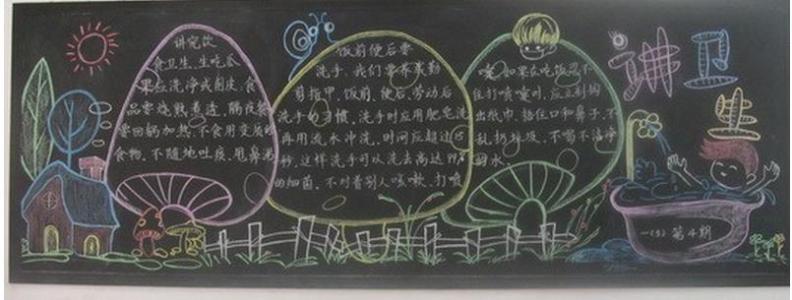 讲卫生
讲究饮
食卫生、生吃瓜
果应洗净或削皮、食
品要烧熟煮透、隔夜菜
要回锅加热、不食用变质的
食物、不随地吐痰、甩鼻涕
饭前便后要
洗手、我们要养成勤
剪指甲、饭前、便后、劳动后
洗手的习惯、洗手时应用肥皂洗
再用流水冲洗、时间应超过15
秒、这样洗手可以洗去高达99%
的细菌、不对着别人咳嗽、打喷
嚏、如果在吃饭忍不
住打喷嚏时、应立刻掏
出纸巾、捂住口和鼻子、不
乱扔垃圾、不喝不洁净
的水、
一(5) 第4期